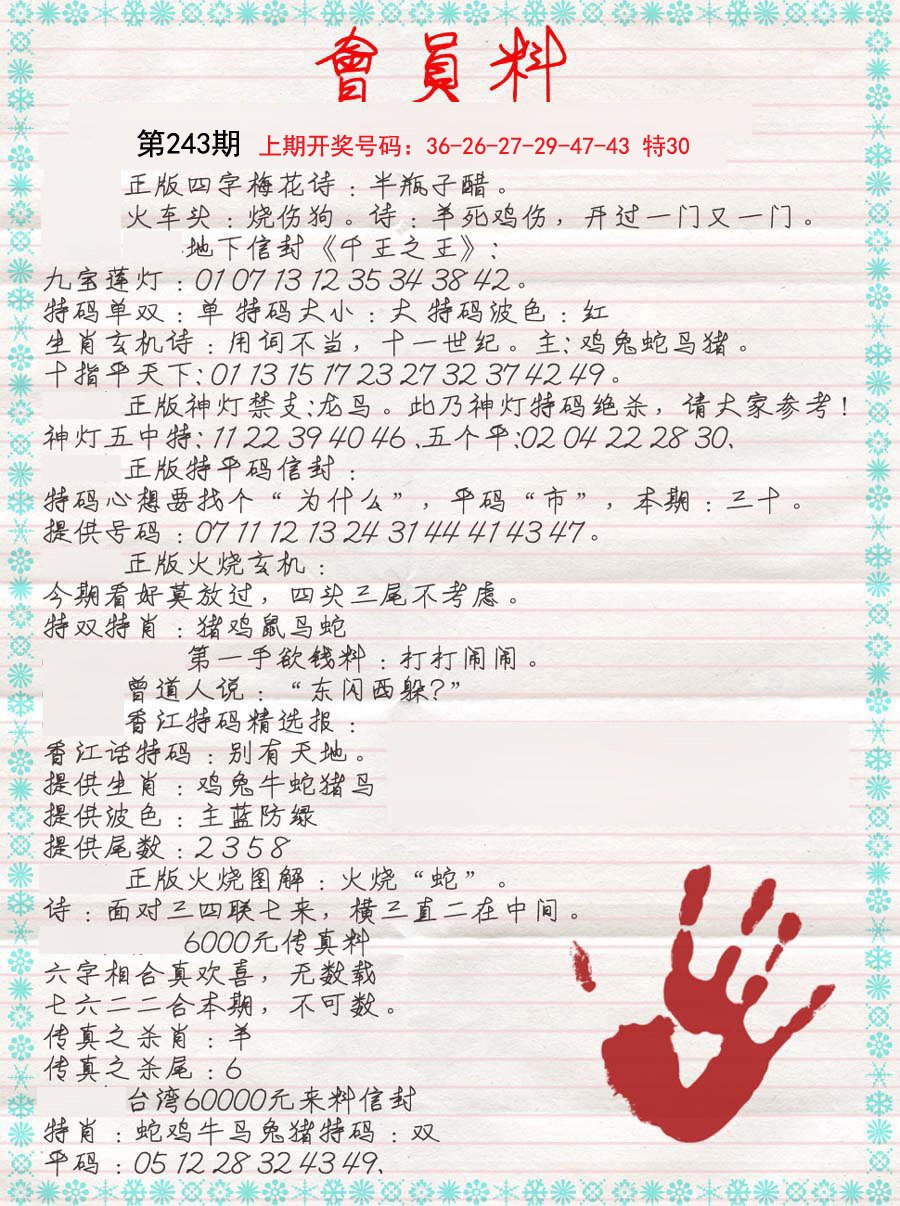 會員料
第243期 上期开奖号码：36-26-27-29-47-43 特30
正版四字梅花诗：半瓶子醋。
火车头：烧伤狗。诗：羊死鸡伤，开过一门又一门。
地下信封《千王之王》：
九宝莲灯：01 07 13 12 35 34 38 42。
特码单双：单 特码大小：大 特码波色：红
生肖玄机诗：用词不当，十一世纪。主：鸡兔蛇马猪。
十指平天下：01 13 15 17 23 27 32 37 42 49。
正版神灯禁支：龙马。此乃神灯特码绝杀，请大家参考！
神灯五中特：11 22 39 40 46、五个平：02 04 22 28 30、
正版特平码信封：
特码心想要找个“为什么”，平码“市”，本期：三十。
提供号码：07 11 12 13 24 31 44 41 43 47。
正版火烧玄机：
今期看好莫放过，四头三尾不考虑。
特双特肖：猪鸡鼠马蛇
第一手欲钱料：打打闹闹。
曾道人说：“东闪西躲？”
香江特码精选报：
香江话特码：别有天地。
提供生肖：鸡兔牛蛇猪马
提供波色：主蓝防绿
提供尾数：2 3 5 8
正版火烧图解：火烧“蛇”。
诗：面对三四联七来，横三直二在中间。
6000元传真料
六字相合真欢喜，无数载
七六二二合本期，不可数。
传真之杀肖：羊
传真之杀尾：6
台湾60000元来料信封
特肖：蛇鸡牛马兔猪特码：双
平码：05 12 28 32 43 49、